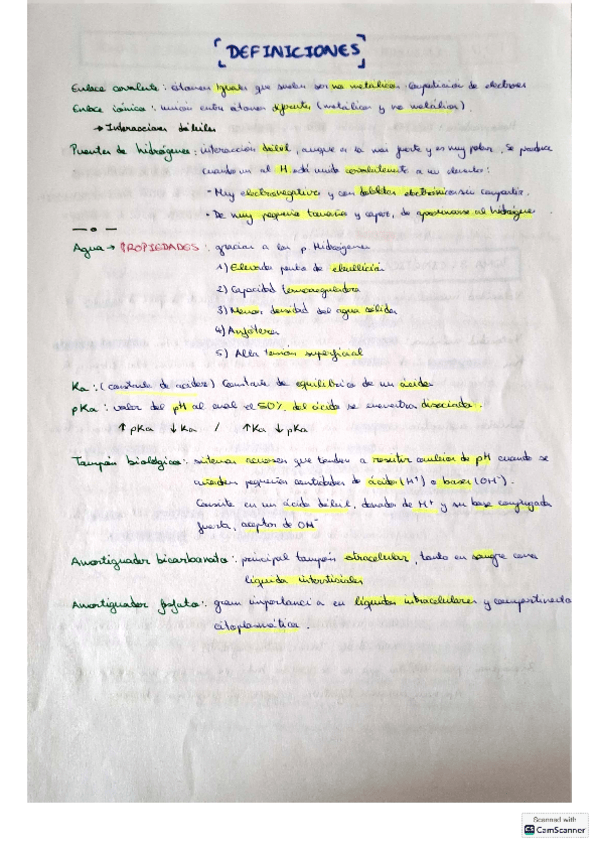 [DEFINICIONES]
Enlace covalente: átomos iguales que suelen ser no metálicos. Compartición de electrones
Enlace iónico: unión entre átomos diferentes (metálicos y no metálicos).
→ Interacciones débiles
Puentes de hidrógeno: interacción débil, aunque es la más fuerte y es muy polar. Se produce
cuando un át H está unido covalentemente a un elemento:
- Muy electronegativo y con dobletes electrónicos sin compartir.
- De muy pequeño tamaño y capaz de aproximarse al hidrógeno.
Agua → PROPIEDADES: gracias a los p. Hidrógeno
1) Elevado punto de ebullición
2) Capacidad termorreguladora
3) Menor densidad del agua sólida
4) Anfótera
5) Alta tensión superficial
Ka: (constante de acidez) Constante de equilibrio de un ácido
pKa: valor del pH al cual el 50% del ácido se encuentra disociado.
↑ pKa ↓ Ka / ↑ Ka ↓ pKa
Tampón biológico: sistemas acuosos que tienden a resistir cambios de pH cuando se
añaden pequeñas cantidades de ácido (H⁺) o bases (OH⁻).
Consiste en un ácido débil, donador de H⁺ y su base conjugada
fuerte, aceptor de OH⁻
Amortiguador bicarbonato: principal tampón extracelular, tanto en sangre como
líquidos intersticiales
Amortiguador fosfato: gran importancia en líquidos intracelulares y compartimento
citoplasmático.
Scanned with
CS CamScanner